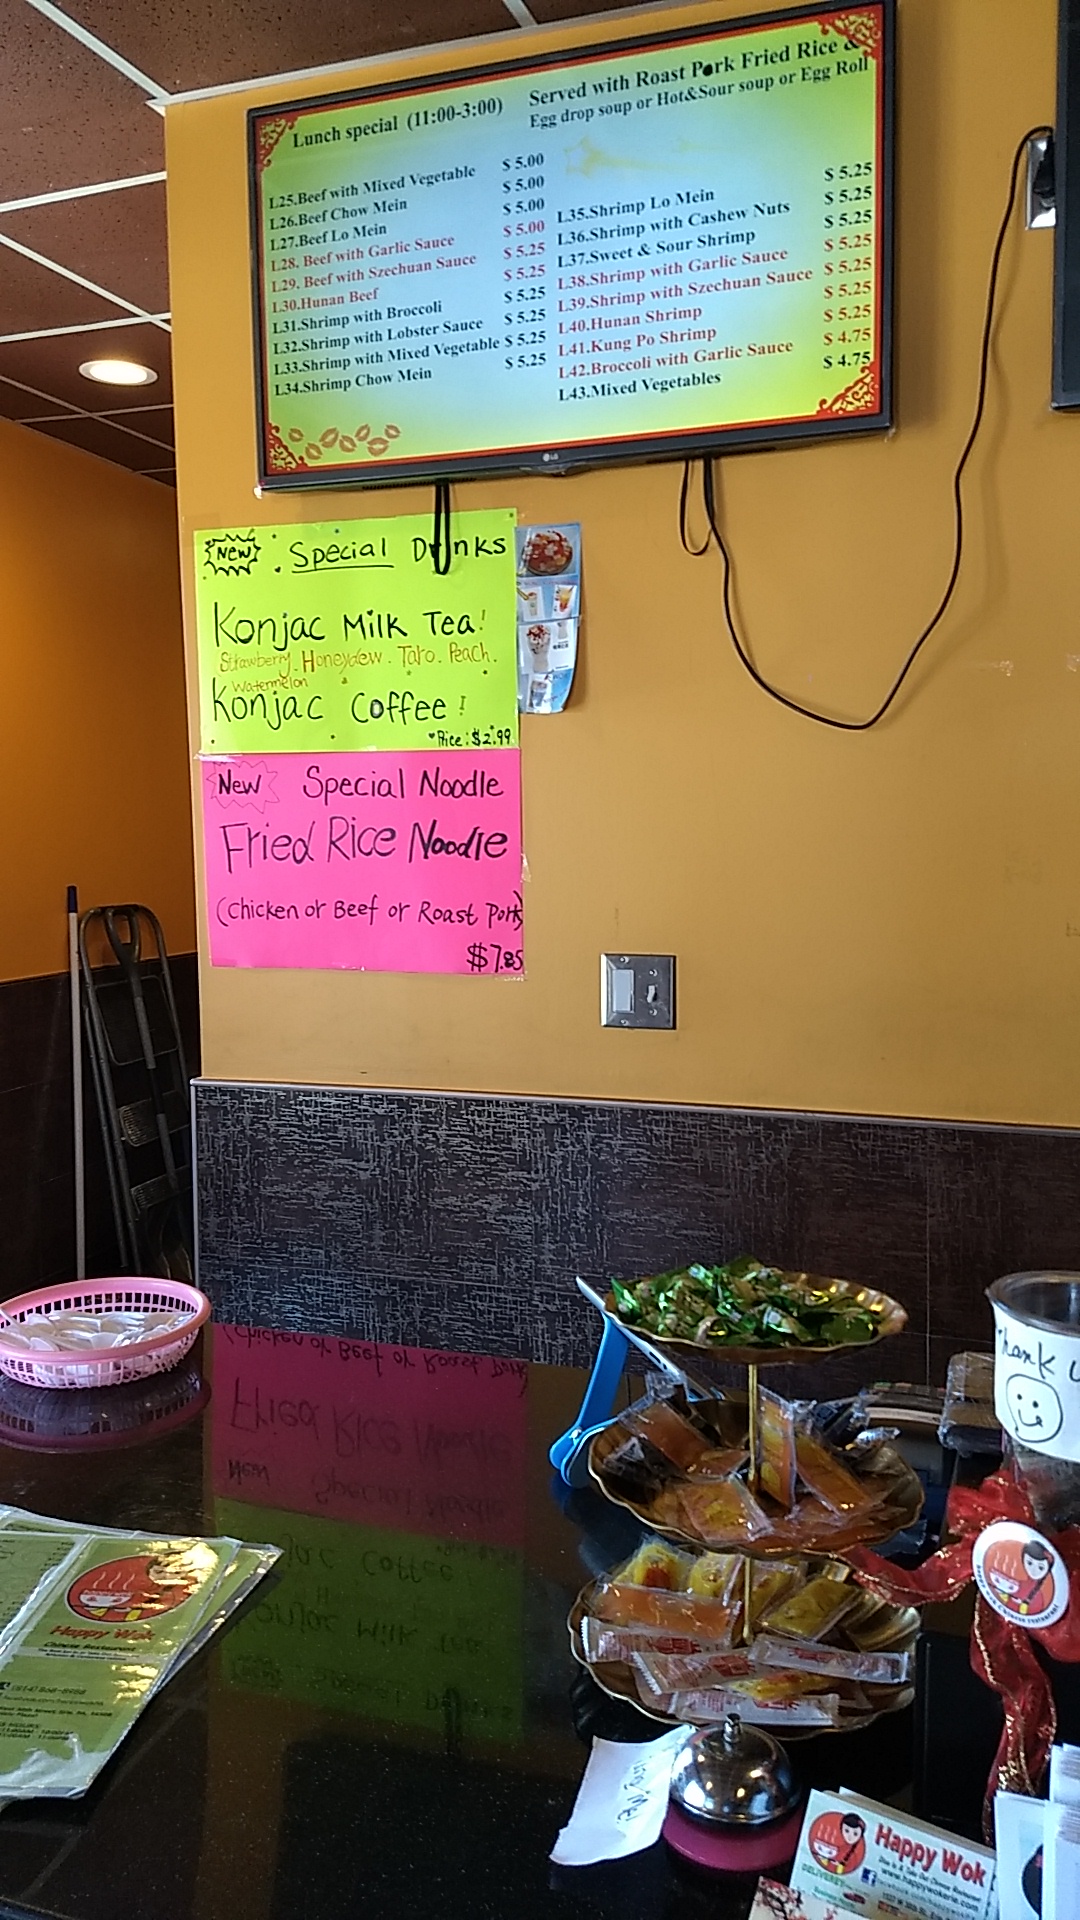 Lunch special (11:00-3:00)
Served with Roast Pork Fried Rice &
Egg drop soup or Hot&Sour soup or Egg Roll
L25.Beef with Mixed Vegetable $ 5.00
L26.Beef Chow Mein $ 5.00
L27.Beef Lo Mein $ 5.00
L28. Beef with Garlic Sauce $ 5.00
L29. Beef with Szechuan Sauce $ 5.25
L30.Hunan Beef $ 5.25
L31.Shrimp with Broccoli $ 5.25
L32.Shrimp with Lobster Sauce $ 5.25
L33.Shrimp with Mixed Vegetable $ 5.25
L34.Shrimp Chow Mein $ 5.25
L35.Shrimp Lo Mein $ 5.25
L36.Shrimp with Cashew Nuts $ 5.25
L37.Sweet & Sour Shrimp $ 5.25
L38.Shrimp with Garlic Sauce $ 5.25
L39.Shrimp with Szechuan Sauce $ 5.25
L40.Hunan Shrimp $ 5.25
L41.Kung Po Shrimp $ 5.25
L42.Broccoli with Garlic Sauce $ 4.75
L43.Mixed Vegetables $ 4.75
LG
New Special Drinks
Konjac Milk Tea!
Strawberry. Honeydew. Taro. Peach.
Watermelon
Konjac Coffee!
Price: $2.99
New Special Noodle
Fried Rice Noodle
(Chicken or Beef or Roast Pork)
$7.85
Thank U
Happy Wok
Chinese Restaurant
(814) 868-8988
Ring Me!
Happy Wok
Dine In & Take Out Chinese Restaurant
DELIVERY